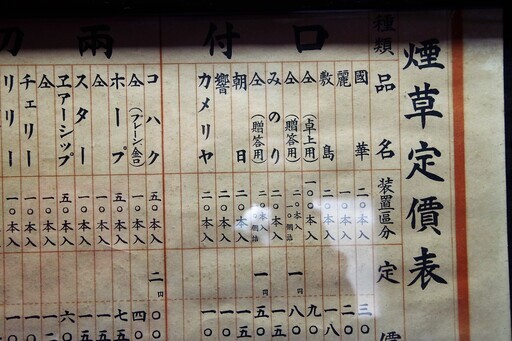 煙草定價表
種類 品名 装置區分 定價
口付
國華 一〇本入 三〇
麗 二〇本入 二〇
敷島 二〇本入 一八
仝(卓上用) 一〇〇本入 九〇
仝(贈答用) 二〇本入 一〇個詰 一円八〇
みのり 二〇本入 一五
仝(贈答用) 二〇本入 一〇個詰 一円五〇
朝日 二〇本入 一五
響 二〇本入 一〇
カメリヤ 二〇本入 一〇
兩
コハク 五〇本入 二円〇〇
仝(プレーン金口) 一〇本入 四〇
ホープ 五〇本入 七五
仝 一〇本入 一五
スター 一〇本入 一五
ヱアーシップ 五〇本入 六〇
仝 一〇本入 一二
チェリー 一〇本入 一〇
リリー 一〇本入